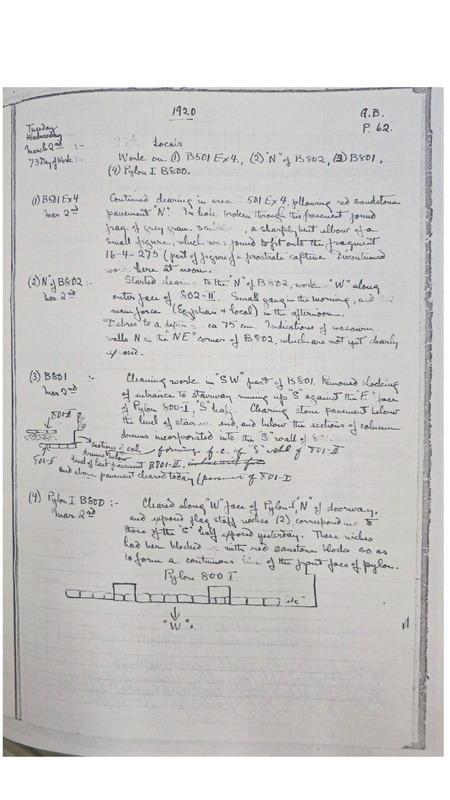 1920
G.B.
P. 62.
Tuesday
Wednesday
March 2nd :-
73 Day of Work :-
Locais
Work on (1) B501 Ex 4., (2) "N" of B802, (3) B801,
(4) Pylon I B800.
(1) B501 Ex 4
Mar 2nd
Continued clearing in area 501 Ex 4, following red sandstone
pavement "N". In hole broken through this pavement found
frag. of grey gran. a sharply bent elbow of a
small figure, which was found to fit onto the fragment
16-4-275 (part of figure of a prostrate captive. Discontinued
work here at noon.
(2) N of B802 :-
Mar 2nd
Started clear to the "N" of B802, work "W" along
outer face of 802-II. Small gang in the morning, and
main force (Egyptian & local) in the afternoon.
Debris to a depth ca 75 cm. Indications of masonry
walls N in the "NE" corner of B802, which are not yet clearly
exposed.
(3) B801 :-
Mar 2nd
Cleaning work in "SW" part of B801. Removed blocking
of entrance to stairway running up "S" against the "E" face
of Pylon 800-I, "S" half. Clearing stone pavement below
the level of stairway end, and below the sections of column
drums incorporated into the "S" wall of
forming f.c. of "S" wall of 801-II
801-II
Sections of col.
drums below
801-I
level of last pavement B801-II,
and above pavement cleared today (pavement of 801-I
(4) Pylon I B800 :-
Mar 2nd
Cleared along "W" face of Pylon I, "N" of doorway,
and exposed flag staff niches (2) correspond to
those of the "S" half exposed yesterday. These niches
had been blocked with red sandstone blocks so as
to form a continuous line of the front face of pylon.
Pylon 800 I.
etc
"W".